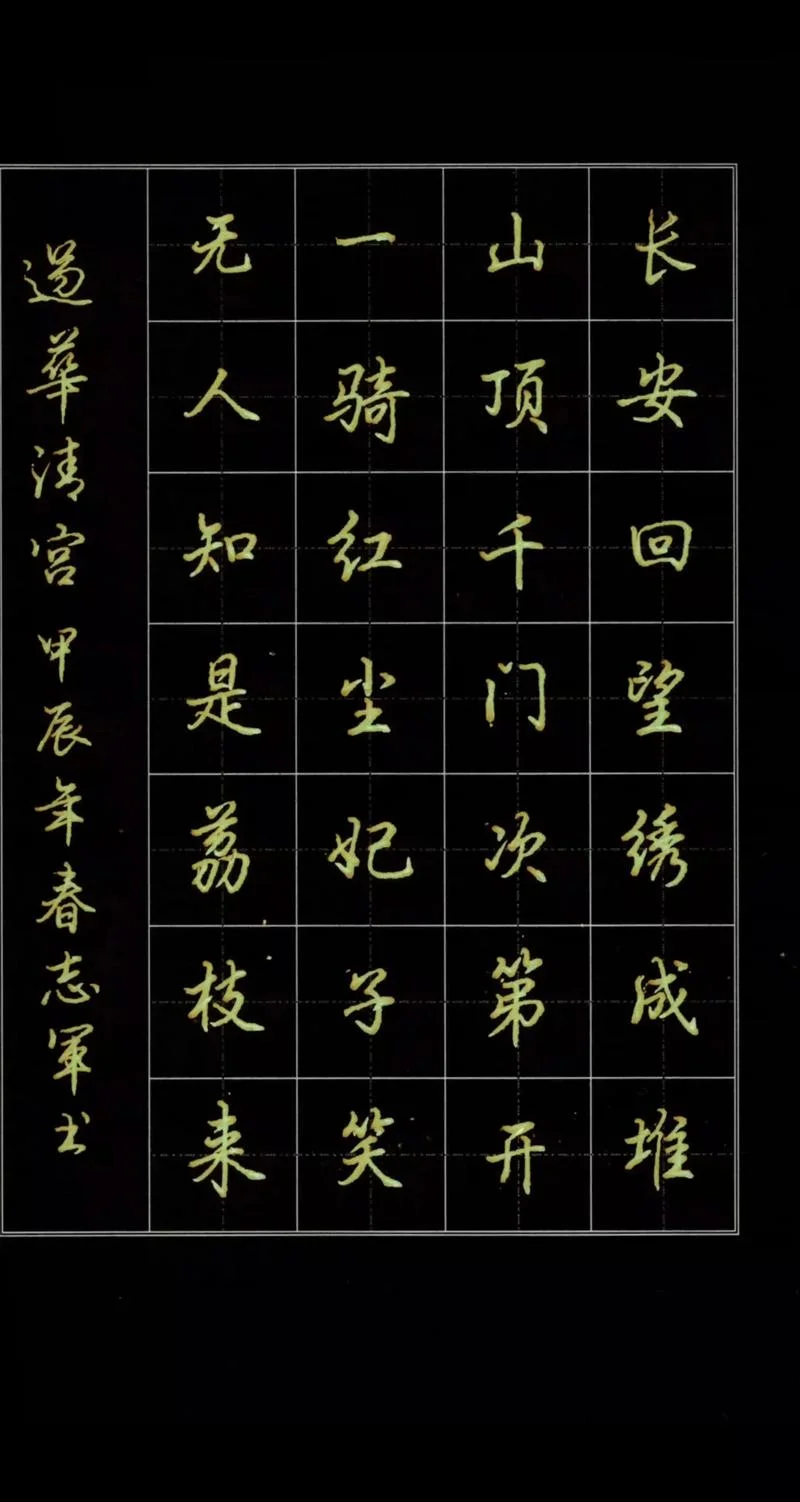 长安回望绣成堆
山顶千门次第开
一骑红尘妃子笑
无人知是荔枝来
過華清宫 甲辰年春志軍书